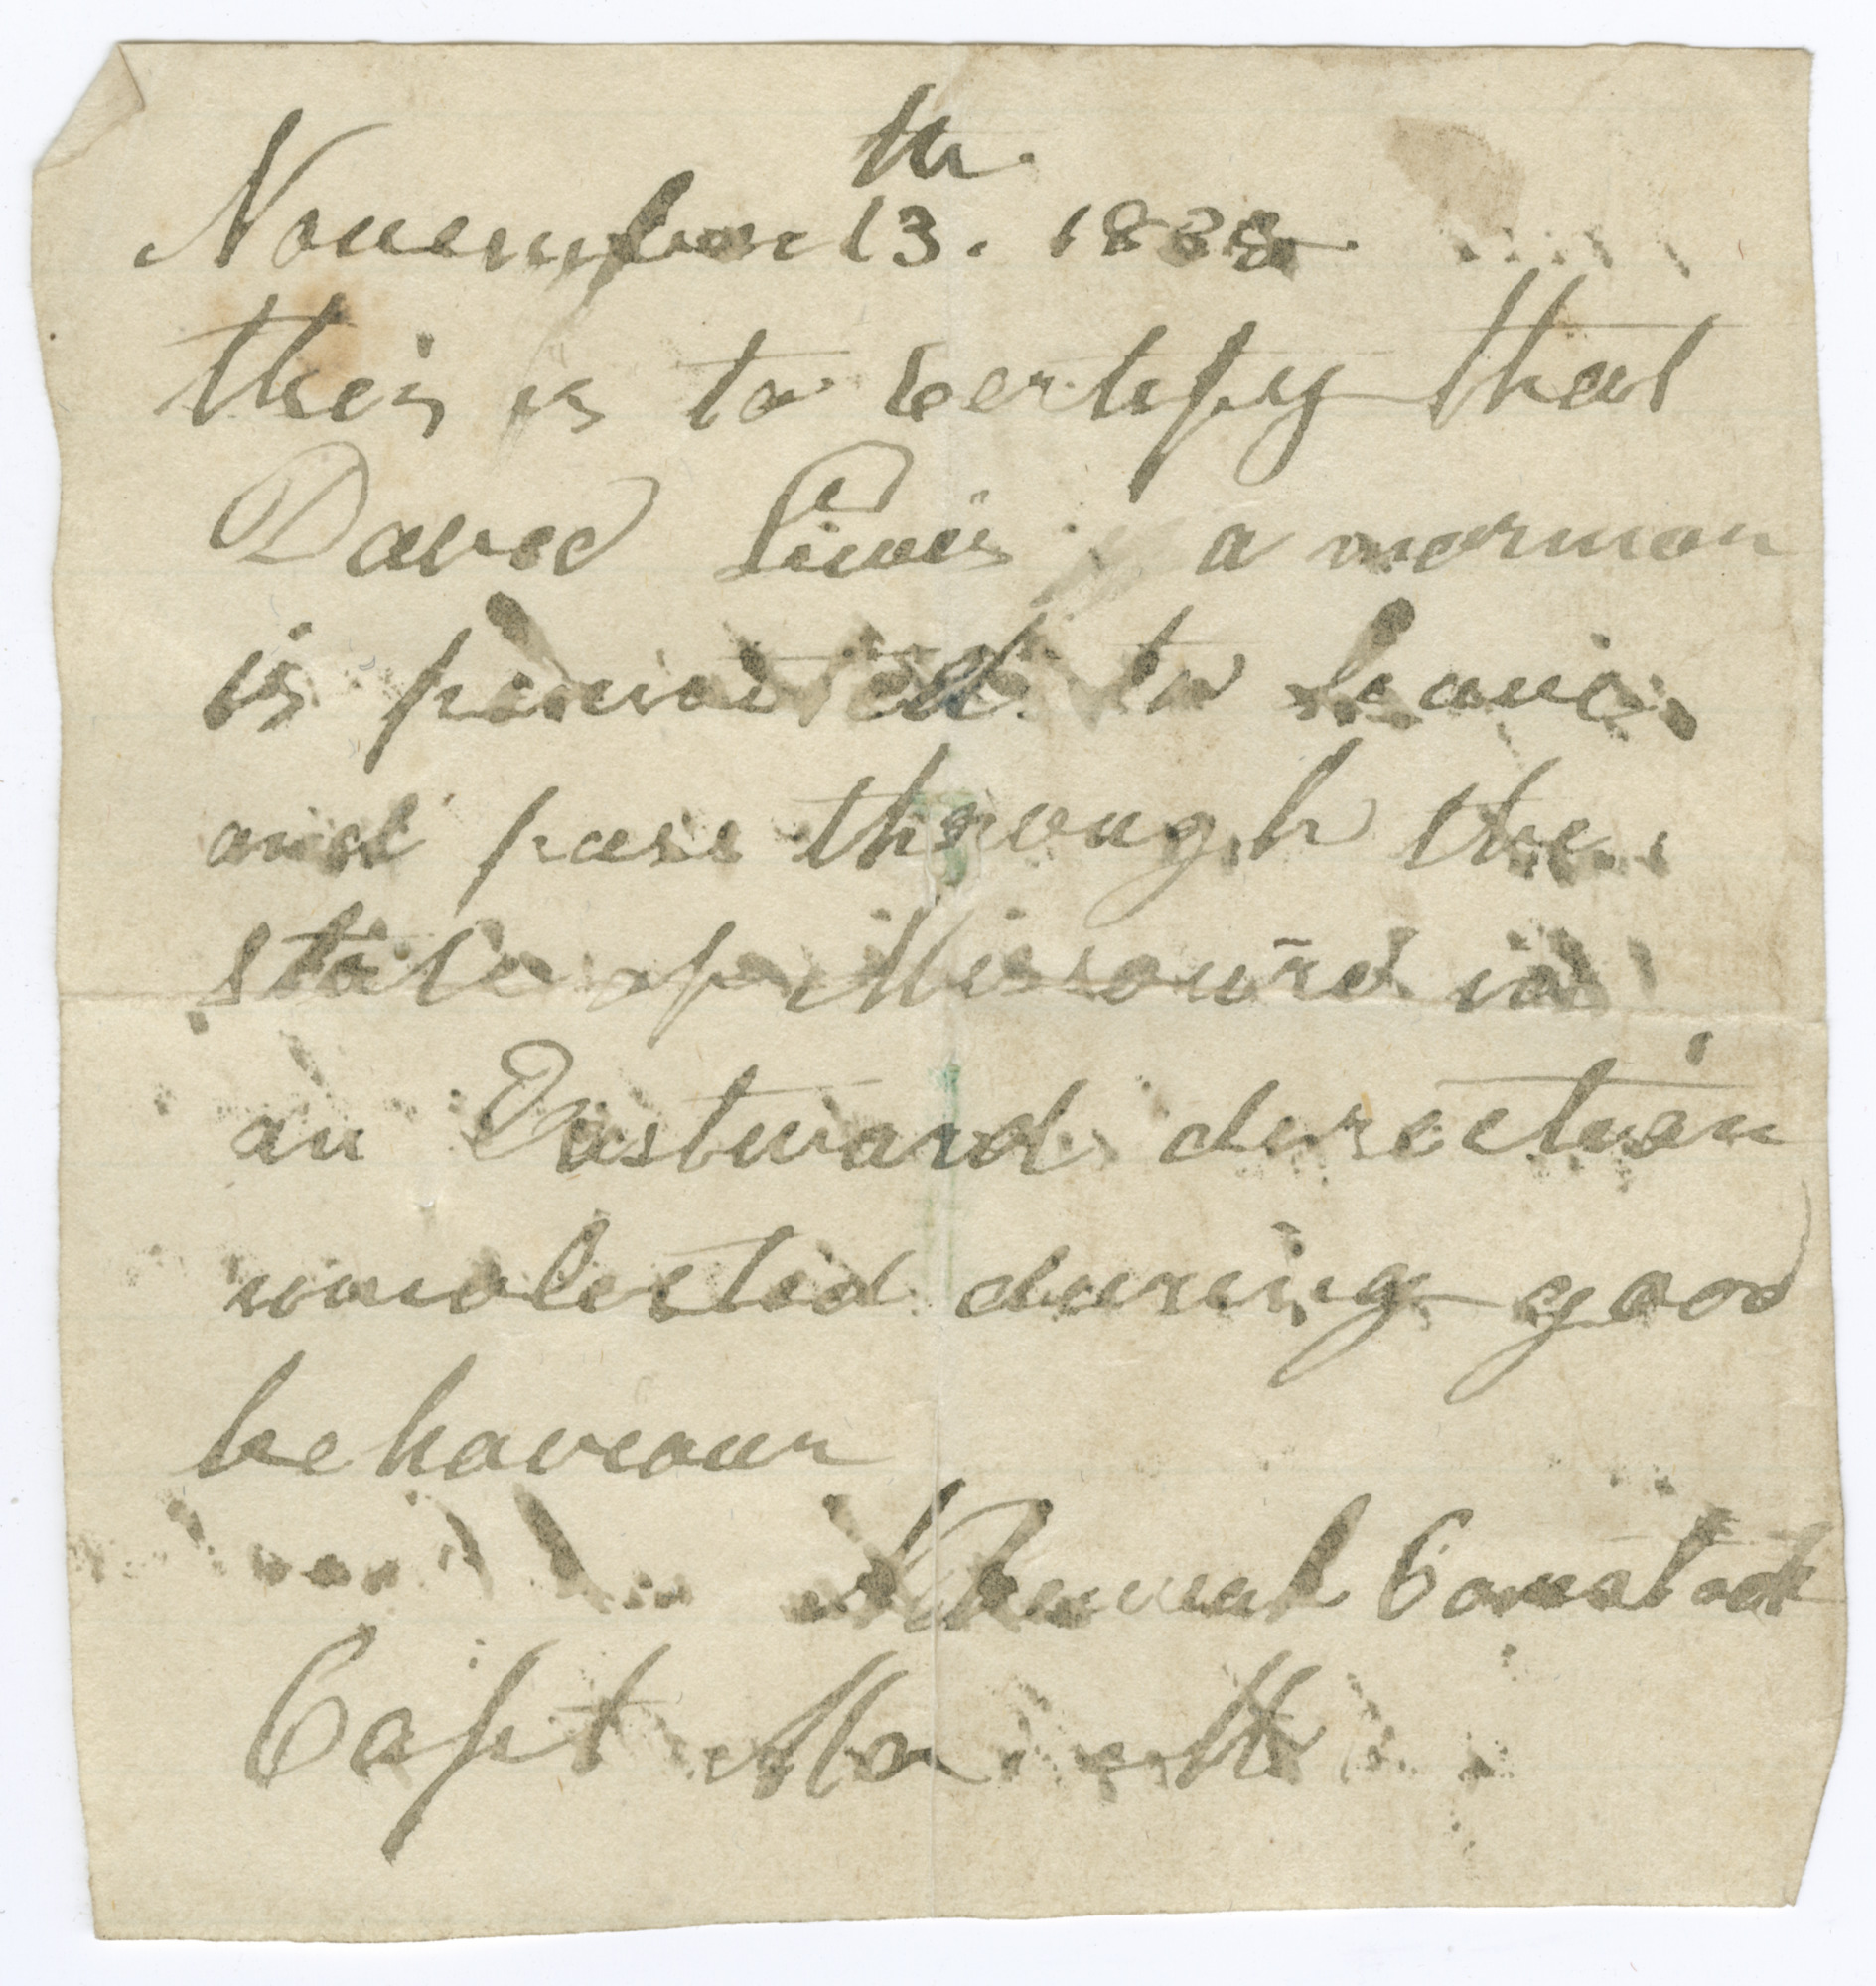 November 13th. 1838
this is to certify that
David Lewis a mormon
is permitted to leave
and pass through the
state of Missouri in
an Eastward direction
unmolested during good
behaviour
Comstock
Capt